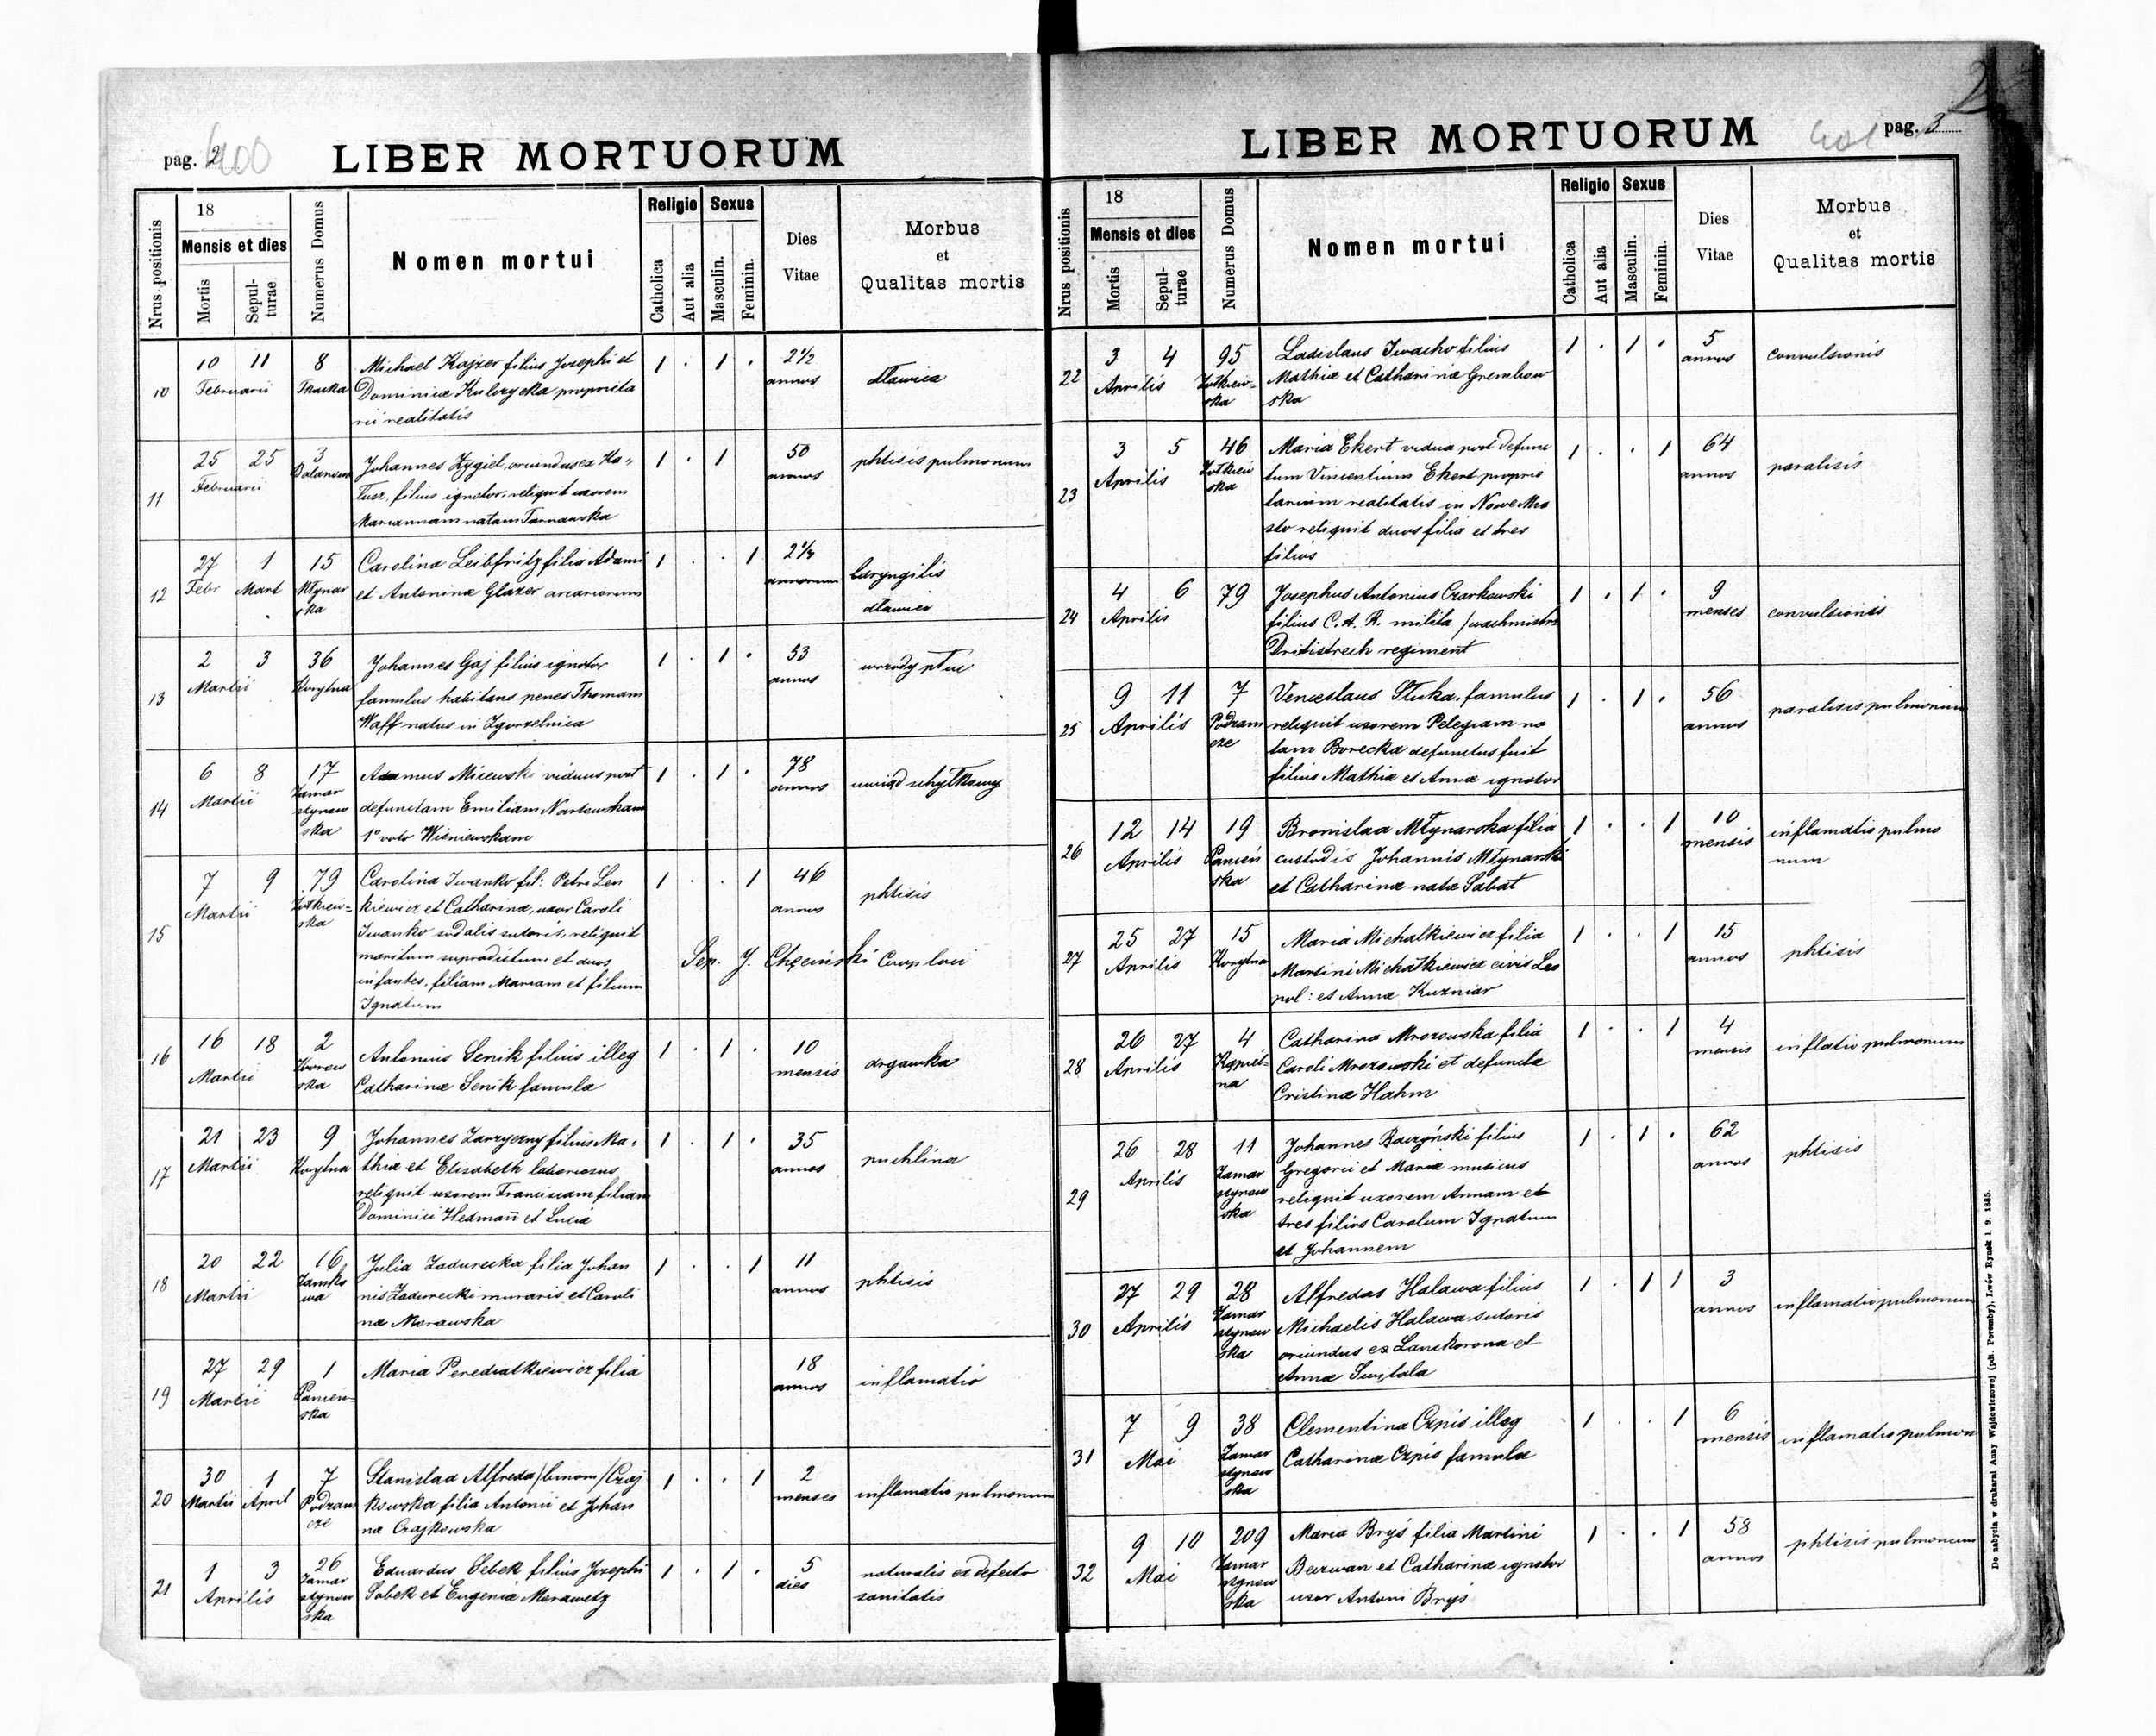 pag. 2
400
LIBER MORTUORUM
Nrus positionis
18
Mensis et dies
Mortis
Sepul-
turae
Numerus Domus
Nomen mortui
Religio
Catholica
Aut alia
Sexus
Masculin.
Feminin.
Dies
Vitae
Morbus
et
Qualitas mortis
10
10 11
Februarii
8
Tkacka
Michael Kajzer filius Josephi et
Dominicæ Kulczycka proprieta
rii realitatis
1 . 1 .
2 1/2
annos
dławica
11
25 25
Februarii
3
Johannes Zygiel, oriundus ex Ka-
filius ignotor, reliquit uxorem
Mariannam natam Tarnawska
1 . 1
50
annos
phtisis pulmonum
12
27 1
Febr Mart
15
Młynar
ska
Carolina Leibfritz filia Adami
et Antoninæ Glazer
1 . . 1
annorum
laryngitis
dławica
13
2 3
Martii
36
Korytna
Johannes Gaj filius ignotor
famulus habitans penes Thomam
Waff natus in Zgorzelnica
1 . 1 .
53
annos
14
6 8
Martii
17
Zamar
stynow
ska
Adamus Misewski viduus post
defunctam Emiliam Nartowskam
1º voto Wisniewskam
1 . 1 .
78
annos
uwiąd schyłkowy
15
7 9
Martii
79
Żółkiew-
ska
Carolina Iwanko fil: Petri Len
kiewicz et Catharinæ, uxor Caroli
Iwanko sodalis sutoris, reliquit
maritum supradictum et duos
infantes, filiam Mariam et filium
Ignatum
1 . . 1
46
annos
phtisis
Sep. J. Chęciński
16
16 18
Martii
2
ska
Antonius Senik filius illeg
Catharinæ Senik famulæ
1 . 1 .
10
mensis
drgawka
17
21 23
Martii
9
Korytna
Johannes Zarzyczny filius Ma-
thiæ et Elisabeth laboriosus
reliquit uxorem Franciscam filiam
Dominici Hedmañ et Luciæ
1 . 1 .
35
annos
puchlina
18
20 22
Martii
16
Zamko
wa
Julia Zadurecka filia Johan
nis Zadurecki muraris et Caroli
næ Morawska
1 . . 1
11
annos
phtisis
19
27 29
Martii
1
Panień-
ska
Maria Perediatkiewicz filia
18
annos
inflamatio
20
30 1
Martii April
7
Podzam
cze
Stanislaa Alfreda /binom/ Czaj
kowska filia Antonii et Johan
næ Czajkowska
1 . . 1
2
menses
inflamatio pulmonum
21
1 3
Aprilis
26
Zamar
stynow
ska
Eduardus Sebek filius Josephi
Sobek et Eugeniæ Morawetz
1 . 1 .
5
dies
naturalis ex defecto
sanitatis
pag. 3
401
2
LIBER MORTUORUM
Nrus positionis
18
Mensis et dies
Mortis
Sepul-
turae
Numerus Domus
Nomen mortui
Religio
Catholica
Aut alia
Sexus
Masculin.
Feminin.
Dies
Vitae
Morbus
et
Qualitas mortis
22
3 4
Aprilis
95
Żółkiew-
ska
Ladislaus Iwacho filius
Mathiæ et Catharinæ Grembow
ska
1 . 1 .
5
annos
convulsionis
23
3 5
Aprilis
46
Żółkiew
ska
Maria Ekert vidua post defunc
tum Vincentium Ekert proprie
tarium realitatis in Nowe Mia
sto reliquit duos filia et tres
filios
1 . . 1
64
annos
paralisis
24
4 6
Aprilis
79
Josephus Antonius Czarkowski
filius C. A. R. milita /wachmistrz
regiment
1 . 1 .
9
menses
convulsionis
25
9 11
Aprilis
7
Podzam
cze
Venceslaus Stuka, famulus
reliquit uxorem Pelegiam na
tam Borecka defunctus fuit
filius Mathiæ et Annæ ignotor
1 . 1 .
56
annos
paralisis pulmonum
26
12 14
Aprilis
19
Panień
ska
Bronislaa Młynarska filia
custodis Johannis Młynarski
et Catharinæ natæ Sabat
1 . . 1
10
mensis
inflamatio pulmo
num
27
25 27
Aprilis
15
Korytna
Maria Michalkiewicz filia
Martini Michałkiewicz civis Leo
pol: et Annæ Kuzniar
1 . . 1
15
annos
phtisis
28
26 27
Aprilis
4
Kąpiel-
na
Catharina Mrozowska filia
Caroli Mrozowski et defunctæ
Cristinæ Hahm
1 . . 1
4
mensis
inflatio pulmonum
29
26 28
Aprilis
11
Zamar
stynow
ska
Johannes Baczyński filius
Gregorii et Mariæ musicus
reliquit uxorem Annam et
tres filios Carolum Ignatum
et Johannem
1 . 1 .
62
annos
phtisis
30
27 29
Aprilis
28
Zamar
stynow
ska
Alfredas Halawa filius
Michaelis Halawa sutoris
oriundus ex Lanckorona et
Annæ Switala
1 . 1 1
3
annos
inflamatio pulmonum
31
7 9
Mai
38
Zamar
stynow
ska
Clementina Czpis illeg
Catharinæ Czpis famulæ
1 . . 1
6
mensis
inflamatio pulmon
32
9 10
Mai
209
Zamar
stynow
ska
Maria Bryś filia Martini
Bezwan et Catharinæ ignotor
uxor Antoni Bryś
1 . . 1
58
annos
phtisis pulmonum
Do nabycia w drukarni Anny Wajdowiczowej (pdt. Poremby), Lwów Rynek l. 9. 1885.